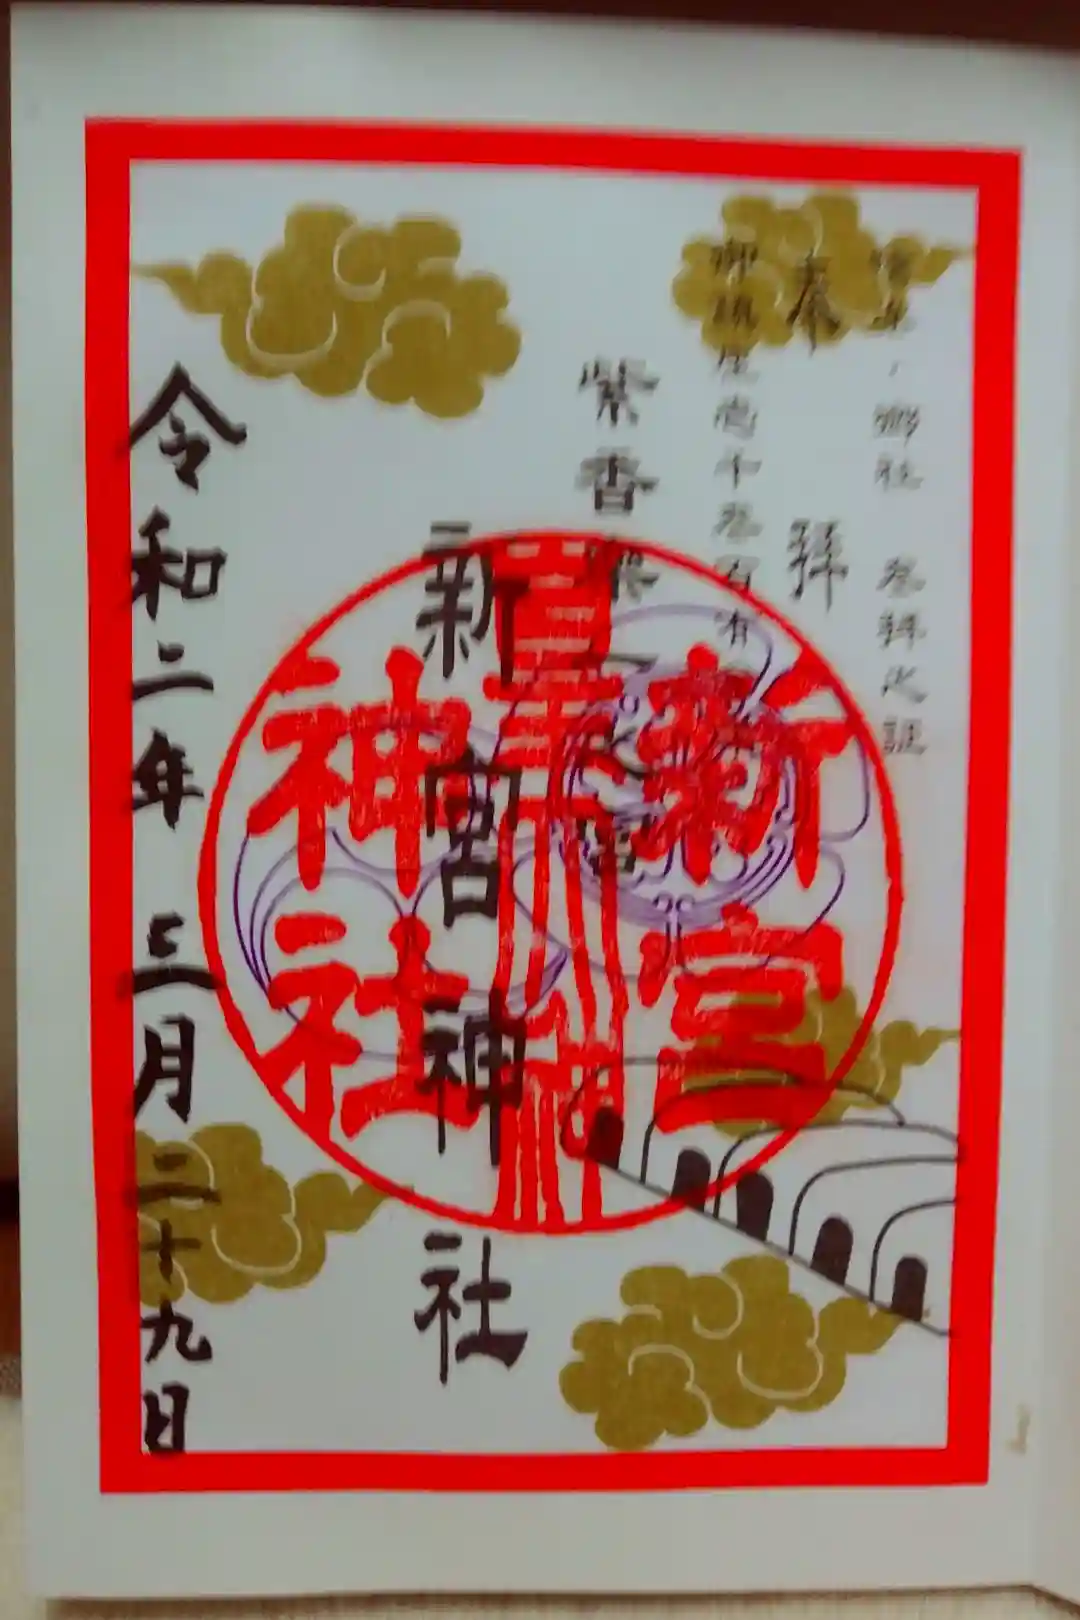 郷社 参拝之証
奉拝
御鎮座壱千参百有
紫香楽
新宮神社
令和二年三月二十九日
新宮
神社